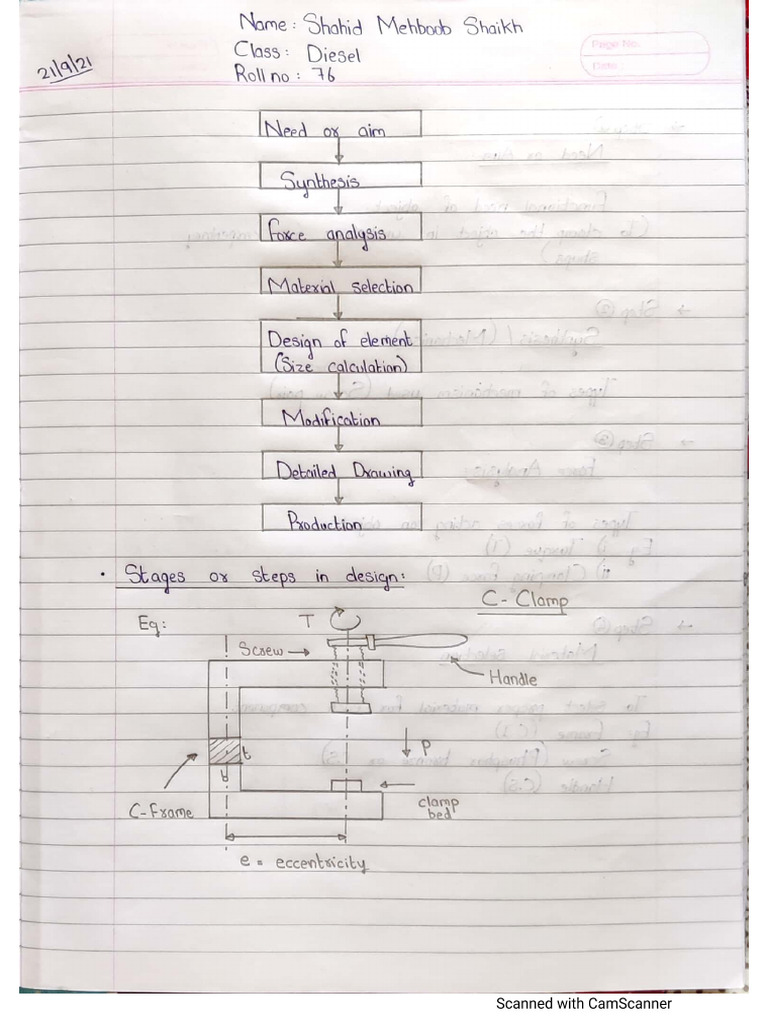 Name: Shahid Mehboob Shaikh
Class: Diesel
Roll no: 76
21/9/21
Page No.
Date:
Need or aim
Synthesis
Force analysis
Material selection
Design of element
(Size calculation)
Modification
Detailed Drawing
Production
• Stages or steps in design:
C-Clamp
Eg:
T
Screw →
Handle
P
t
b
C-Frame
clamp
bed
e = eccentricity
Scanned with CamScanner